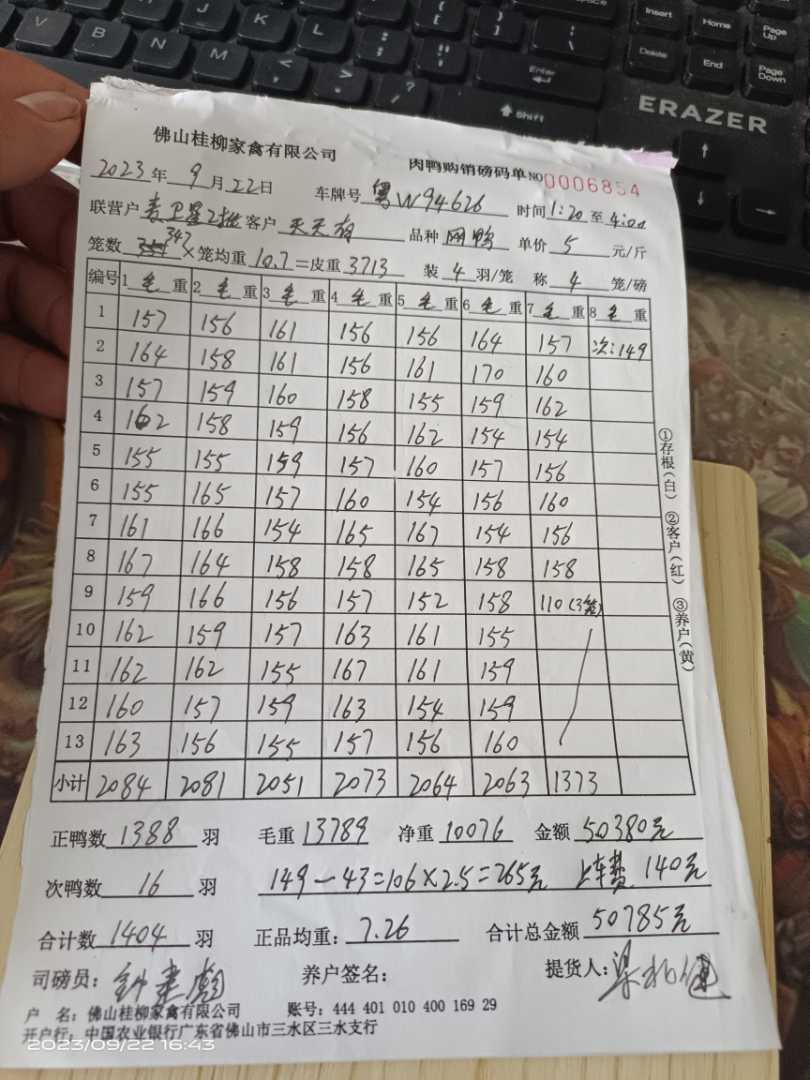 佛山桂柳家禽有限公司 肉鸭购销磅码单 NO 0006854
2023年 9月22日 车牌号 粤W94626 时间 1:20 至 4:00
联营户 卫星2批 客户 天天 品种 鸭 单价 5 元/斤
笼数 347 ×笼均重 10.7 =皮重 3713 装 4 羽/笼 称 4 笼/磅
编号 1毛重 2毛重 3毛重 4毛重 5毛重 6毛重 7毛重 8毛重
1 157 156 161 156 156 164 157 次:149
2 164 158 161 156 161 170 160
3 157 159 160 158 155 159 162
4 162 158 159 156 162 154 154
5 155 155 159 157 160 157 156
6 155 165 157 160 154 156 160
7 161 166 154 165 167 154 156
8 167 164 158 158 165 158 158
9 159 166 156 157 152 158 110(3笼)
10 162 159 157 163 161 155
11 162 162 155 167 161 159
12 160 157 159 163 154 159
13 163 156 155 157 156 160
小计 2084 2081 2051 2073 2064 2063 1373
①存根(白) ②客户(红) ③养户(黄)
正鸭数 1388 羽 毛重 13789 净重 10076 金额 50380元
次鸭数 16 羽 149-43=106×2.5=265元 上车费 140元
合计数 1404 羽 正品均重: 7.26 合计总金额 50785元
司磅员: 养户签名: 提货人:
户 名:佛山桂柳家禽有限公司 账号:444 401 010 400 169 29
开户行:中国农业银行广东省佛山市三水区三水支行
2023/09/22 16:43
V B N M K L
Enter
Shift
Insert Home Page Up
Delete End Page Down
ERAZER